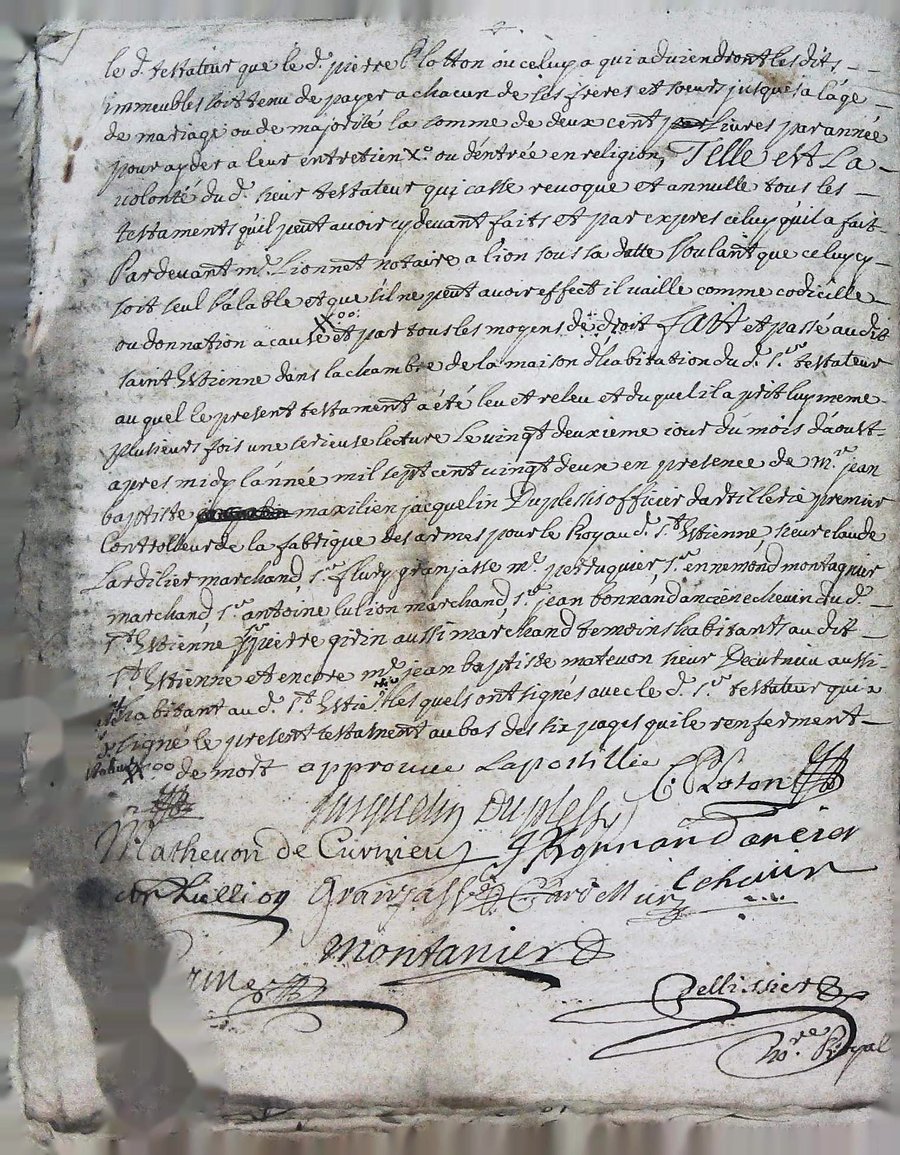 le d. testateur que le d. pierre Cloton ou celuy a qui aduiendront les dits
immeubles soit tenu de payer a chacun de ses freres et soeurs jusques a l'age
de mariage ou de majorité la somme de deux cent livres par année
pour ayder a leur entretien X.o ou d'entrée en religion, Telle est La
volonté du d. sieur testateur qui casse revoque et annulle tous les
testaments qu'il peut avoir cydevant faits et par expres celuy qu'il a fait
Pardevant m.e Lionnet notaire a lion sous sa datte Voulant que celuy cy
soit seul valable et que s'il ne peut avoir effect il vaille comme codicille
ou donnation a cause XX oo et par tous les moyens de droit fait et passé au dit
saint Estienne dans la chambre de la maison d'habitation du d. s.r testateur
au quel le present testament a été leu et releu et du quel il a pris luy meme
plusieurs fois une serieuse lecture Le vingt deuxieme iour du mois d'aoust
apres midy l'année mil sept cent vingt deux en presence de m.r jean
baptiste maxilien jacquelin Duplessis officier d'artillerie premier
Controlleur de la fabrique des armes pour le Roy au d. s.t Estienne, sieur claude
Lardilier marchand, s.r flury granjasse m.e perruquier s.r ennemond montagnier
marchand, s.r antoine lulion marchand, s.r jean bonnand ancien echevin du d.
s.t Estienne s.r pierre girin aussi marchand temoins habitants au dit
s.t Estienne et encore m.e jean baptiste matevon sieur De curnieu aussi
habitant au d. s.t Estie.ne lesquels ont signés avec le d. s.r testateur qui a
signé le present testament au bas des six pages qui le renferment
XX oo de mort approuve Lapostille C. Cloton
Jacquelin Duplessis
Mathevon de Curnieu J Bonnand ancien
Lullion Granjasse Lardellier echevin
Montanier
Pellissier
no.re Royal